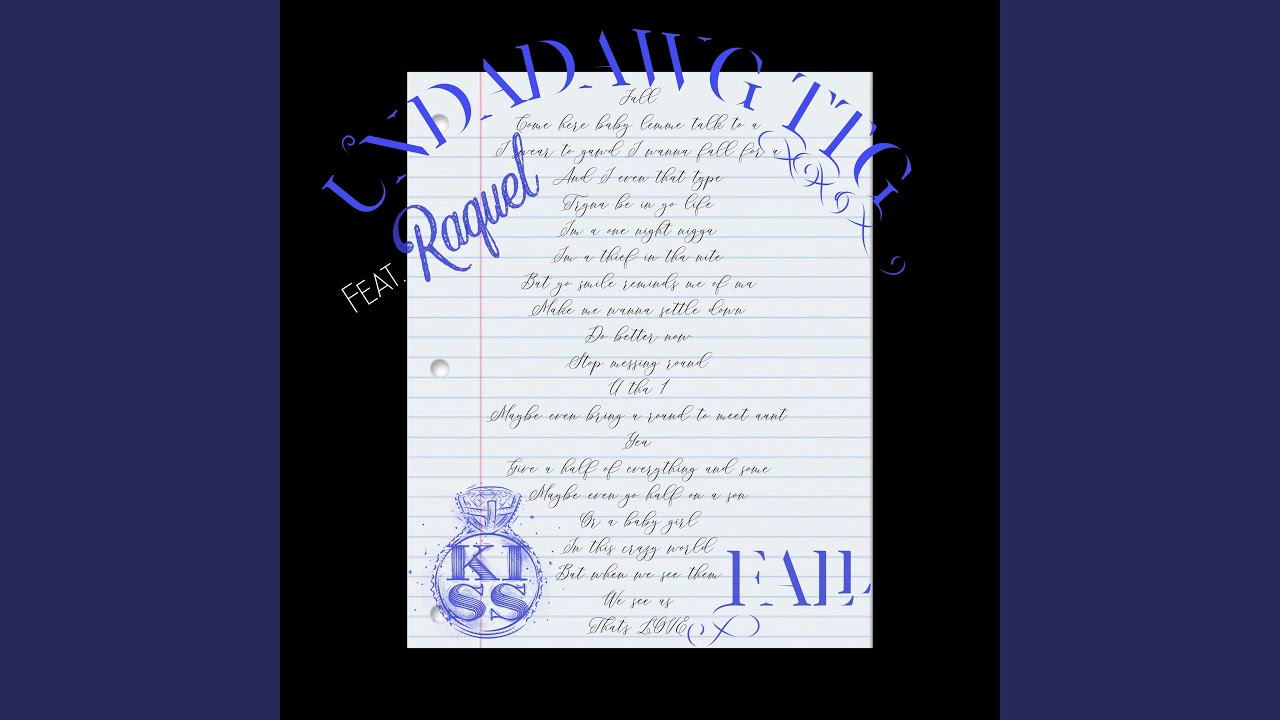 UNDADAWG TTG
FEAT. Raquel
Fall
Come here baby lemme talk to a
I swear to gawd I wanna fall for a
And I even that type
Tryna be in yo life
Im a one night nigga
Im a thief in tha nite
But yo smile reminds me of ma
Make me wanna settle down
Do better now
Stop messing round
U tha 1
Maybe even bring a round to meet aunt
Yea
Give a half of everything and some
Maybe even go half on a son
Or a baby girl
In this crazy world
But when we see them
We see us
Thats LOVE
KI
SS
FALL